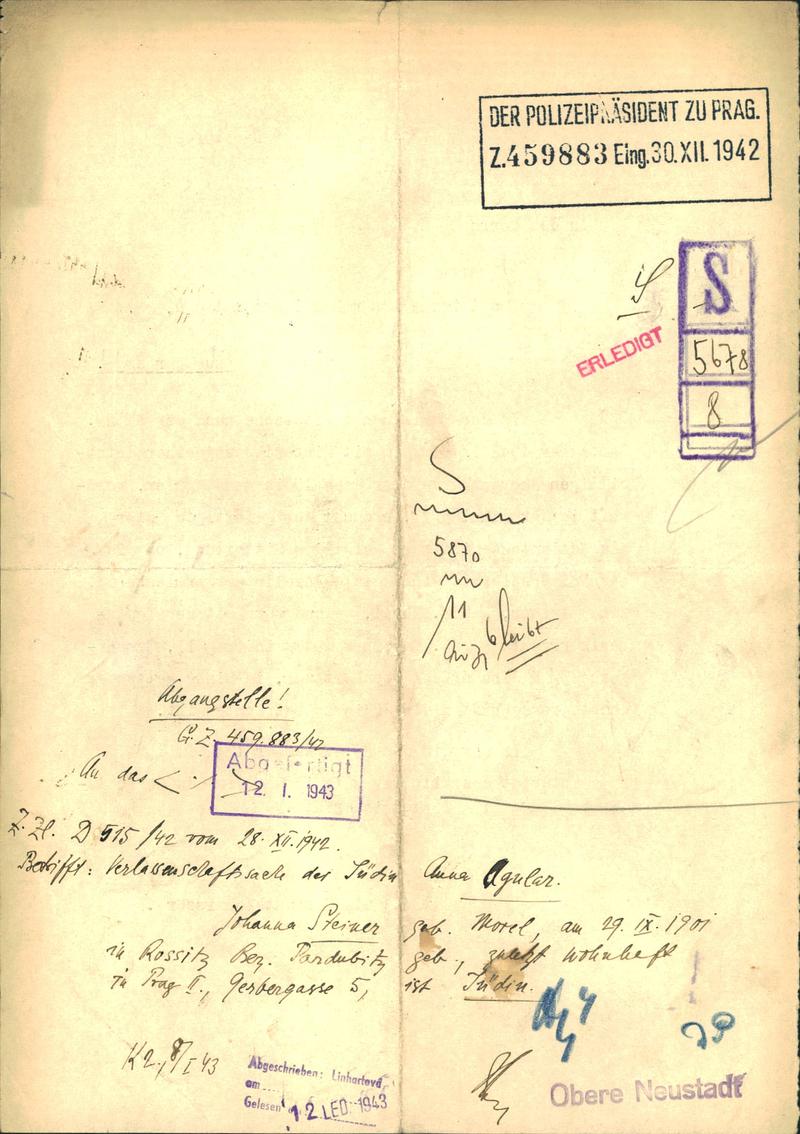 DER POLIZEIPRÄSIDENT ZU PRAG.
Z. 459883 Eing. 30. XII. 1942
S
S
ERLEDIGT
5678
8
S
5870
11
bleibt
Abgangstelle!
G.Z. 459.883/42
An das
Abgefertigt
12. I. 1943
Z.Zl. D 515/42 vom 28. XII. 1942.
Betrifft: Verlassenschaftssache der Jüdin Anna Agular.
Johanna Steiner geb. Morel, am 29. IX. 1901
in Rossitz Bez. Pardubitz geb., zuletzt wohnhaft
in Prag II., Gerbergasse 5, ist Jüdin.
K2, 8/I 43
Abgeschrieben: Linhartová
am
Gelesen
12 LED. 1943
Obere Neustadt